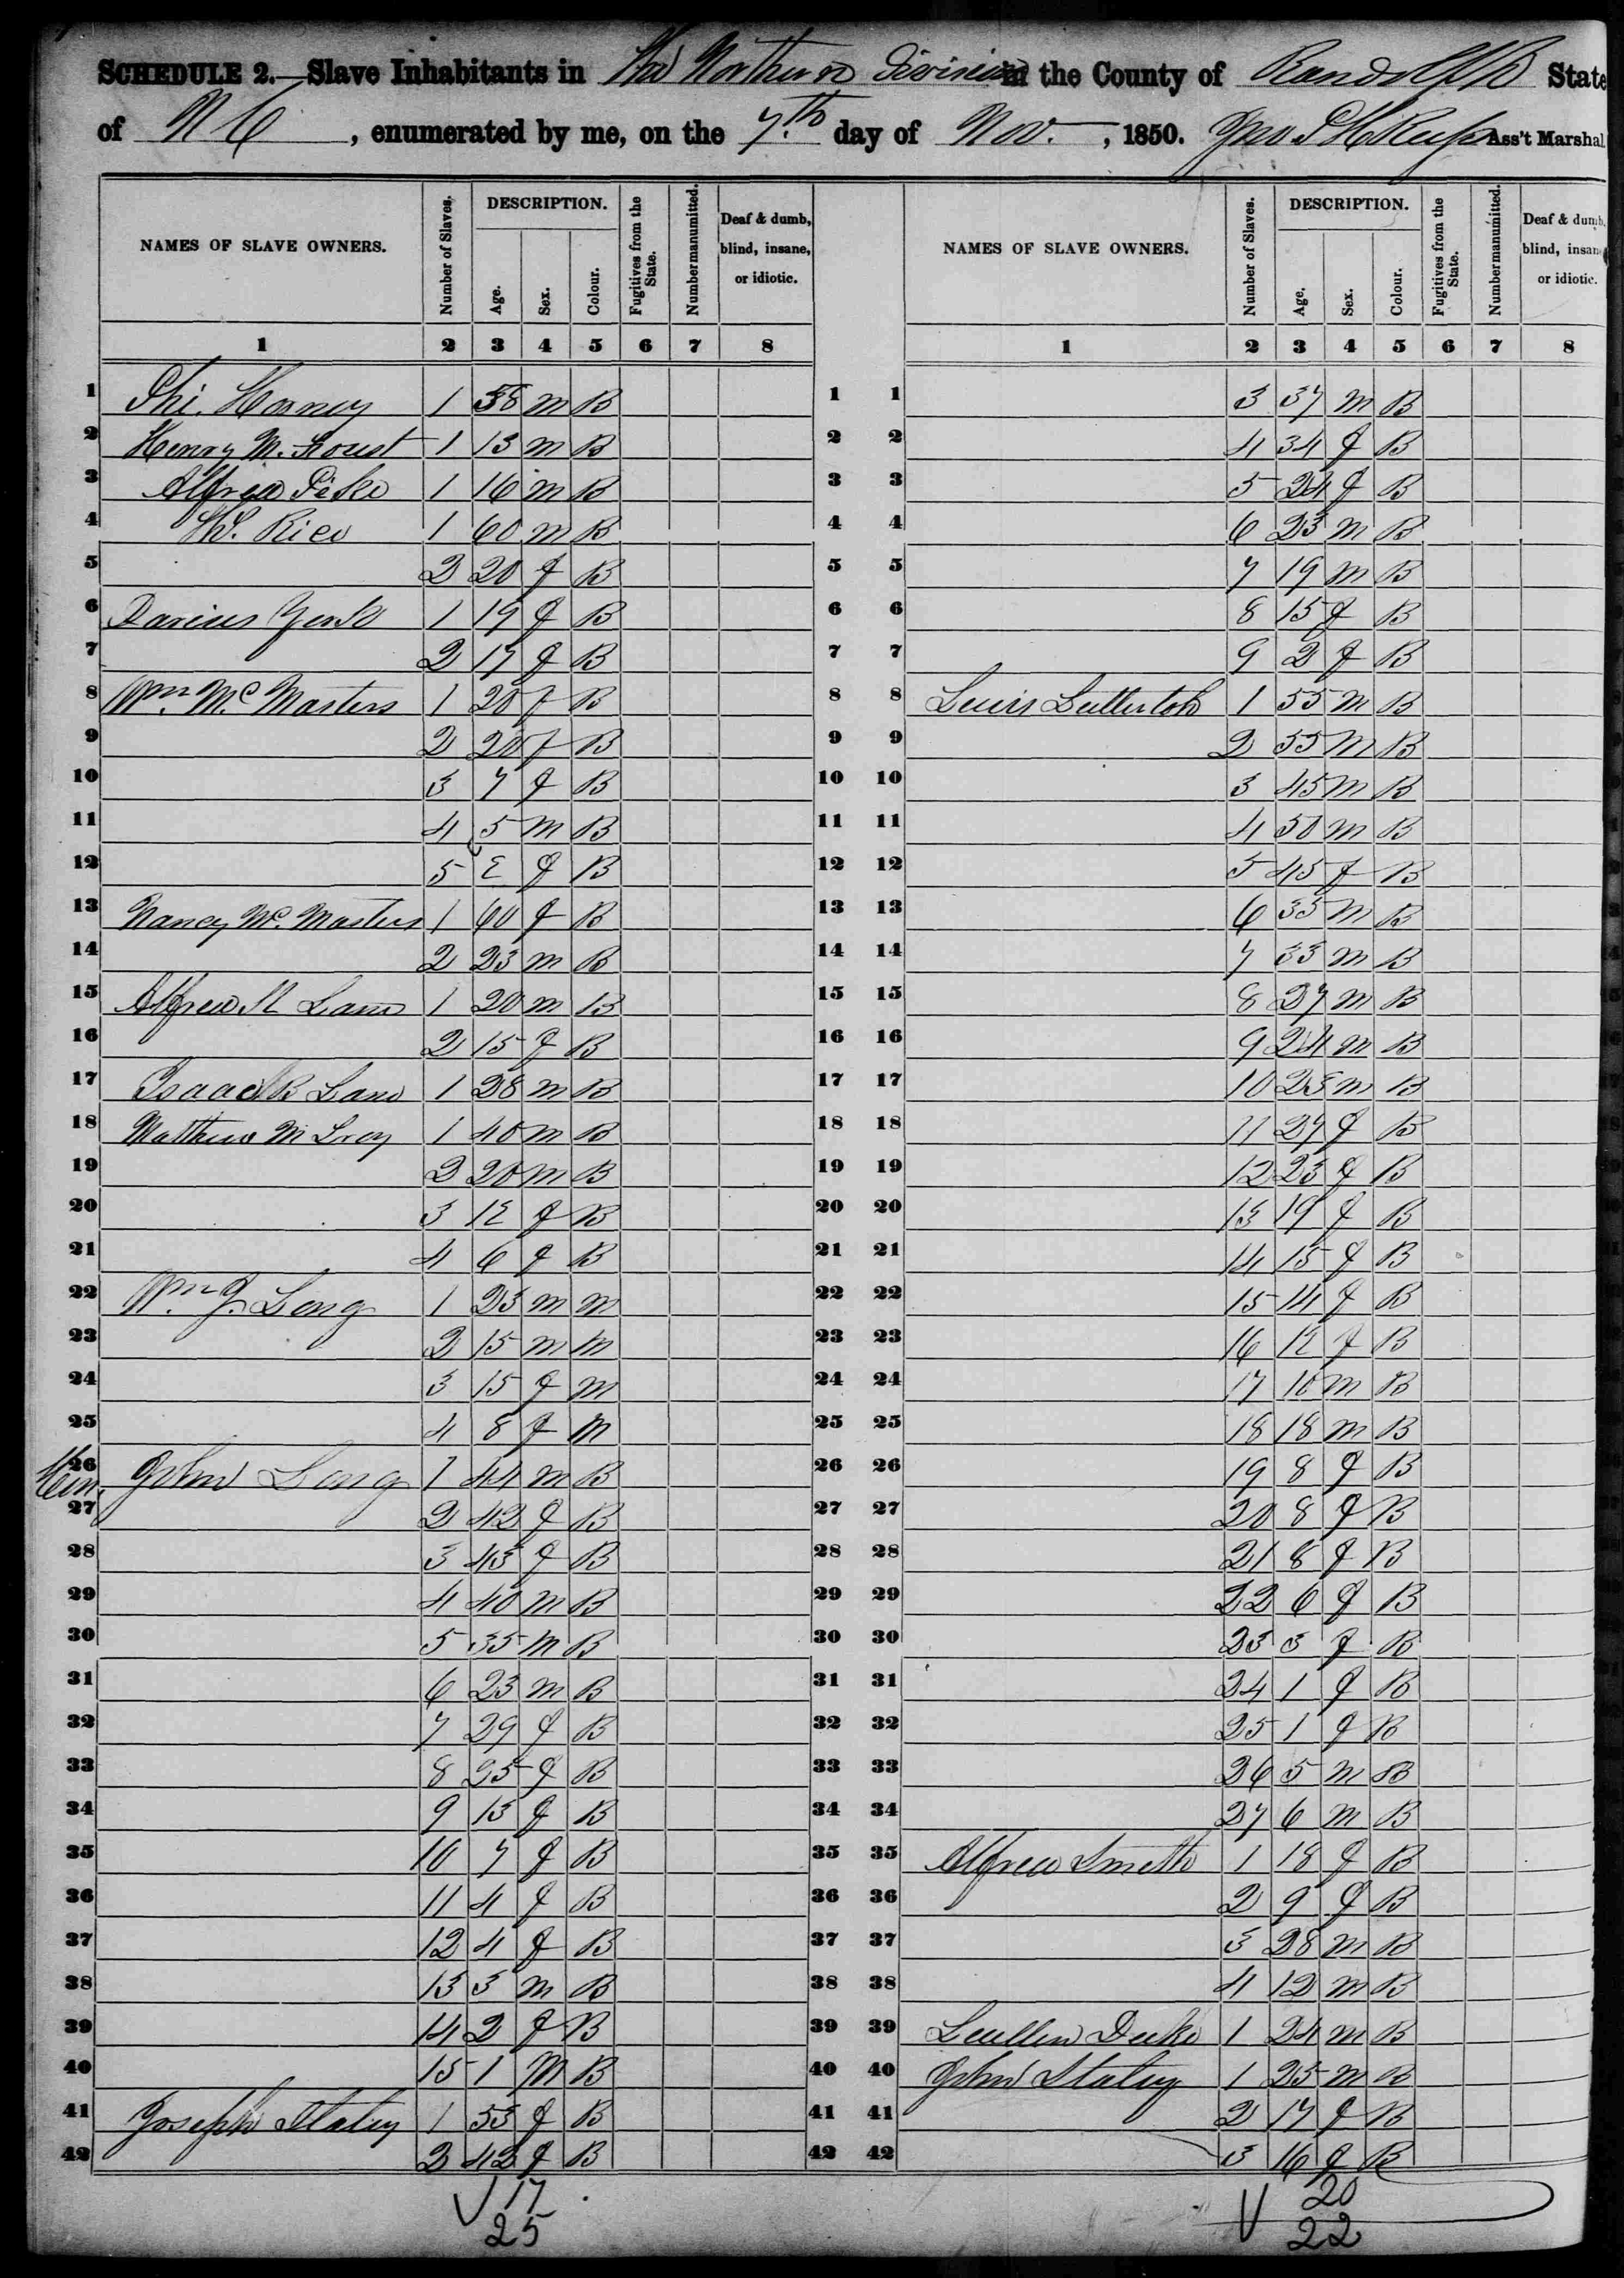 SCHEDULE 2.—Slave Inhabitants in The Northern Division in the County of Randolph State
of N C, enumerated by me, on the 7th day of Nov., 1850. Ass't Marshal
NAMES OF SLAVE OWNERS. Number of Slaves. DESCRIPTION. Age. Sex. Colour. Fugitives from the State. Number manumitted. Deaf & dumb, blind, insane, or idiotic.
1 2 3 4 5 6 7 8
1 Phi. Horney 1 58 m B 1
2 Henry M. Foust 1 13 m B 2
3 Alfred Pike 1 16 m B 3
4 Rice 1 60 m B 4
5 2 20 f B 5
6 Darius York 1 19 f B 6
7 2 17 f B 7
8 Wm. Mc Masters 1 20 f B 8
9 2 20 f B 9
10 3 7 f B 10
11 4 5 m B 11
12 5 f B 12
13 Nancy Mc. Masters 1 60 f B 13
14 2 23 m B 14
15 Alfred Lane 1 20 m B 15
16 2 15 f B 16
17 Isaac B Lane 1 28 m B 17
18 Matthew M Leroy 1 40 m B 18
19 2 20 m B 19
20 3 12 f B 20
21 4 6 f B 21
22 Wm. J. Long 1 23 m m 22
23 2 15 m m 23
24 3 15 f m 24
25 4 8 f m 25
26 John Long 1 44 m B 26
27 2 42 f B 27
28 3 43 f B 28
29 4 40 m B 29
30 5 35 m B 30
31 6 23 m B 31
32 7 29 f B 32
33 8 25 f B 33
34 9 13 f B 34
35 10 7 f B 35
36 11 4 f B 36
37 12 4 f B 37
38 13 3 m B 38
39 14 2 f B 39
40 15 1 m B 40
41 Joseph Staley 1 53 f B 41
42 2 42 f B 42
17
25
NAMES OF SLAVE OWNERS. Number of Slaves. DESCRIPTION. Age. Sex. Colour. Fugitives from the State. Number manumitted. Deaf & dumb, blind, insane, or idiotic.
1 2 3 4 5 6 7 8
1 3 37 m B
2 4 34 f B
3 5 24 f B
4 6 23 m B
5 7 19 m B
6 8 15 f B
7 9 2 f B
8 Lewis Lutterloh 1 55 m B
9 2 55 m B
10 3 45 m B
11 4 50 m B
12 5 45 f B
13 6 35 m B
14 7 33 m B
15 8 27 m B
16 9 24 m B
17 10 23 m B
18 11 27 f B
19 12 23 f B
20 13 19 f B
21 14 15 f B
22 15 14 f B
23 16 12 f B
24 17 10 m B
25 18 18 m B
26 19 8 f B
27 20 8 f B
28 21 8 f B
29 22 6 f B
30 23 3 f B
31 24 1 f B
32 25 1 f B
33 26 5 m B
34 27 6 m B
35 Alfred Smith 1 18 f B
36 2 9 f B
37 3 28 m B
38 4 12 m B
39 1 24 m B
40 John Staley 1 25 m B
41 2 17 f B
42 3 16 f B
20
22